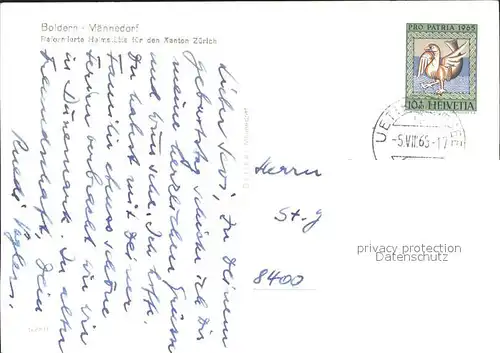 Boldern - Männedorf
Reformierte Heimstätte für den Kanton Zürich
PRO PATRIA 1965
10+10 HELVETIA
-5.VII.65-17
Lieber Levi, Zu Deinem
Geburtstag schicke ich Dir
meine herzlichen Grüsse
und Wünsche. Ich hoffe,
Du habest mit Deiner
Familie etwas schöne
Ferien verbracht wie wir
in Dänemark. In alter
Freundschaft, Dein
Ruedi
Herrn
St-G
8400
privacy protection
Datenschutz